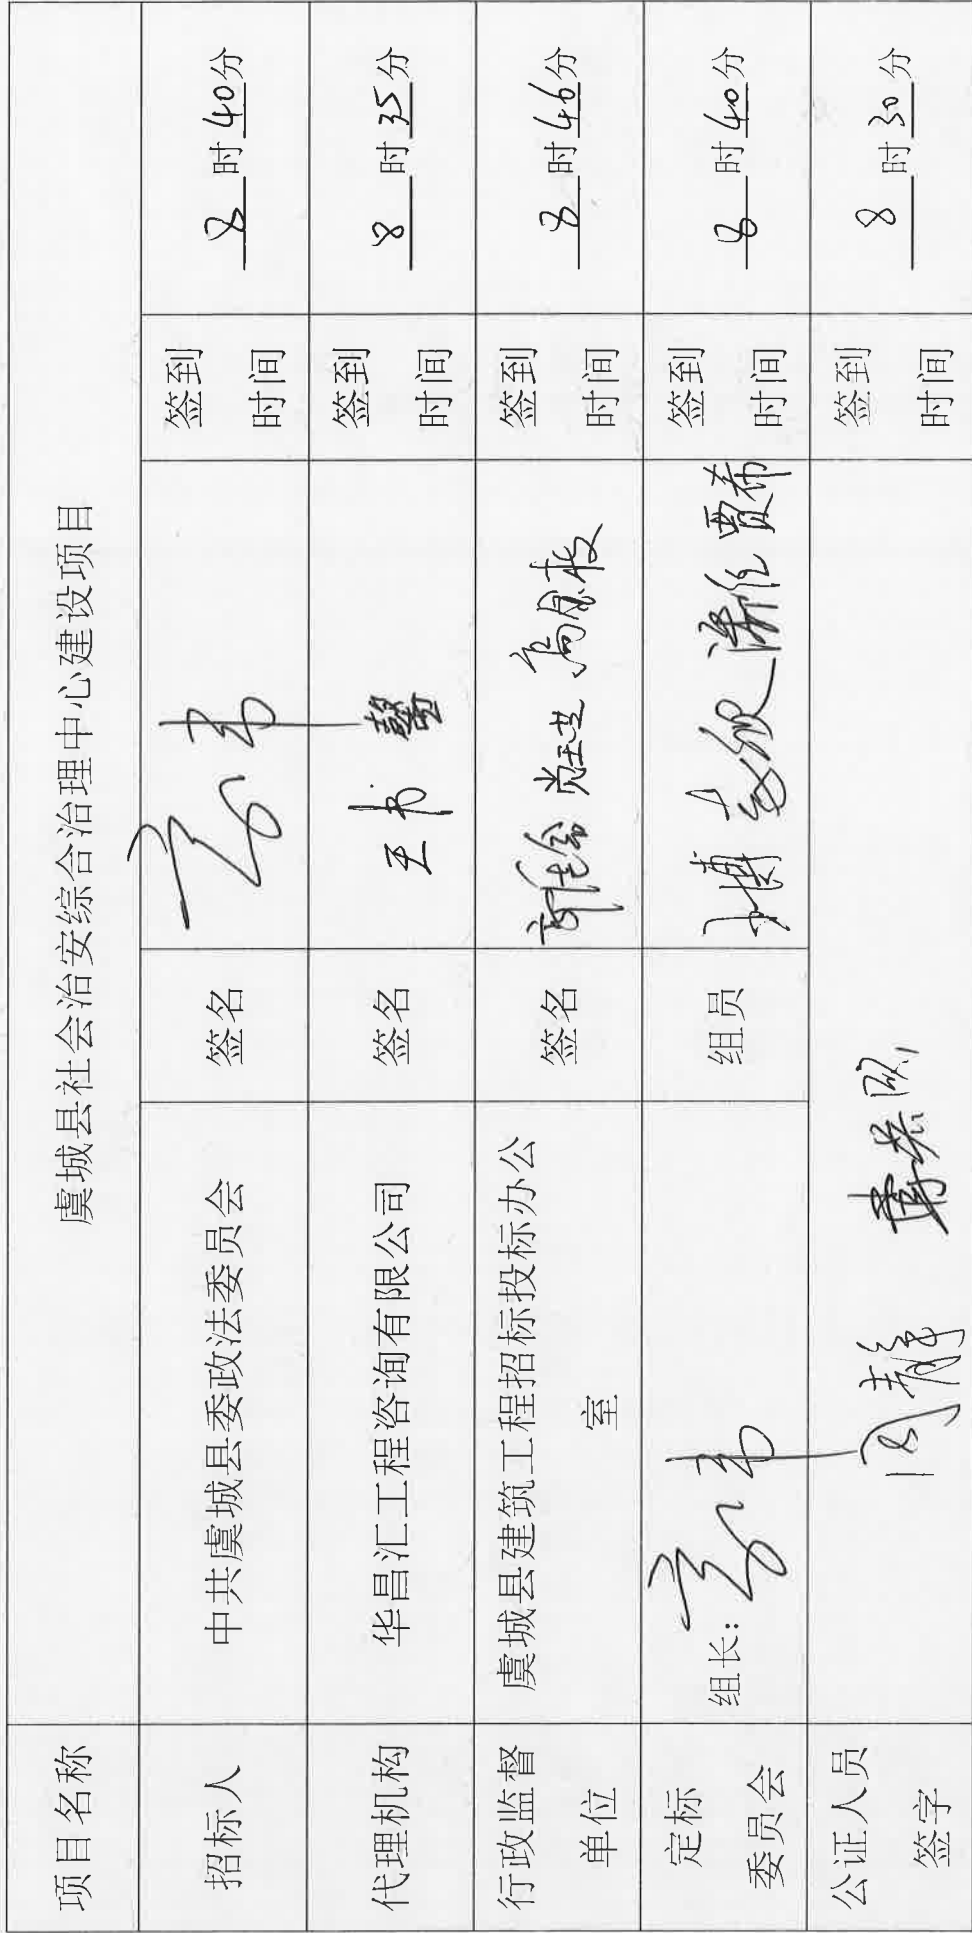 项目名称 虞城县社会治安综合治理中心建设项目
招标人 中共虞城县委政法委员会 签名 签到时间 8时40分
代理机构 华昌汇工程咨询有限公司 签名 王书馨 签到时间 8时35分
行政监督单位 虞城县建筑工程招标投标办公室 签名 签到时间 8时46分
定标委员会 组长: 组员 贾希 签到时间 8时40分
公证人员签字 周静 签到时间 8时30分